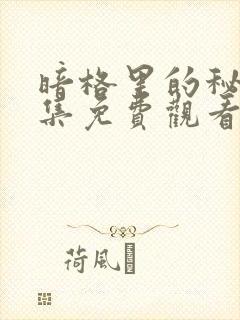 暗格里的秘
集免费觀看
荷风